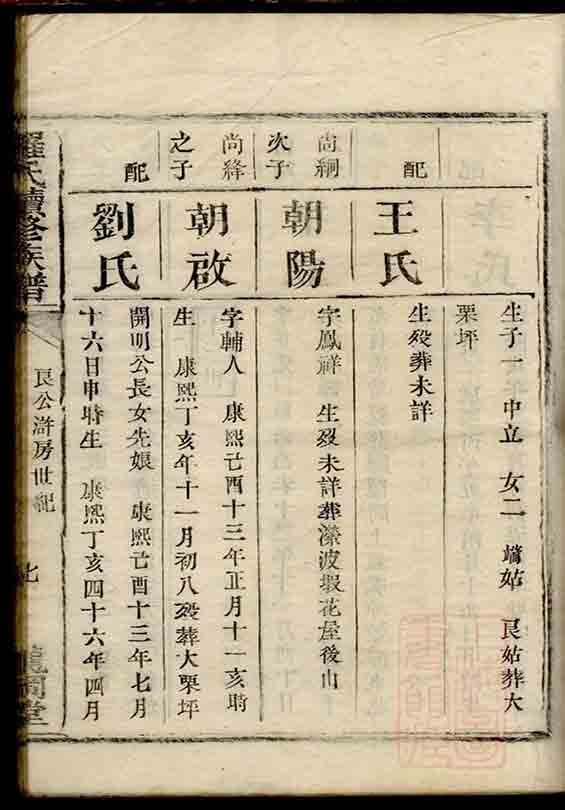 生子一 中立 女二 墻姑 良姑葬大
栗坪
配
王氏
生殁葬未詳
尚綱
次子
朝陽
字鳳祥 生殁未詳葬瀠波塅花屋後山
尚絳
之子
朝啟
字輔人 康熙己酉十三年正月十一亥時
生 康熙丁亥年十一月初八殁葬大栗坪
配
劉氏
開明公長女先娘 康熙己酉十三年七月
十六日申時生 康熙丁亥四十六年四月
羅氏續修族譜
良公滸房世紀
七